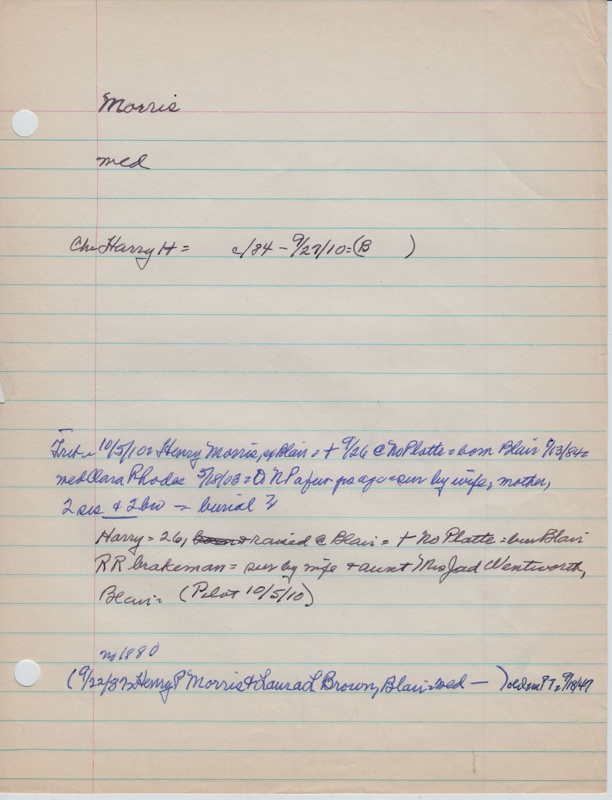 Morris
med
Ch = Harry H = c/84 - 9/27/10 = (B )
10/5/10 = Henry Morris, of Blair = + 9/26 @ No Platte = born Blair 9/13/84 =
med Clara Rhodes 5/18/03 = to N P a few yrs ago = sur by wife, mother,
2 sis & 2 bro = burial ?
Harry = 26, born & raised @ Blair = + No Platte = born Blair
RR brakeman = sur by wife & aunt Mrs Jad Wentworth,
Blair = (Pilot 10/5/10)
no 1880
(9/22/37 = Henry P Morris & Laura L Brown, Blair = med — ) 9/18/47